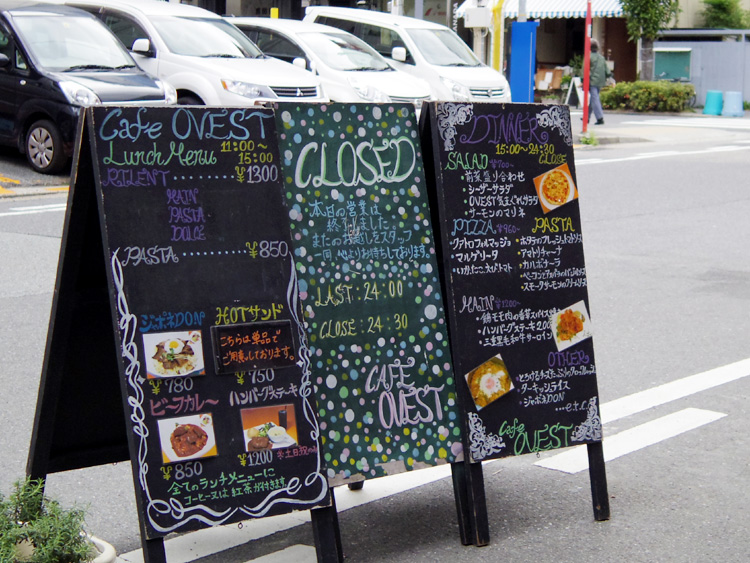 Cafe OVEST
Lunch Menu 11:00〜15:00
RILENT ¥1300
MAIN
PASTA
DOLCE
PASTA ¥850
ジャポネDON
¥780
HOTサンド
こちらは単品で
ご用意しております。
¥750
ビーフカレー
¥850
ハンバーグステーキ
¥1200
全てのランチメニューに
コーヒー又は紅茶が付きます
CLOSED
本日の営業は
終了しました
またのお越しをスタッフ
一同心よりお待ちしております。
LAST : 24:00
CLOSE : 24:30
CAFE
OVEST
DINNER
15:00〜24:30 CLOSE
SALAD ¥700〜
・前菜盛り合わせ
・シーザーサラダ
・OVEST気まぐれサラダ
・サーモンのマリネ
PIZZA ¥960〜
・クアトロフォルマッジョ
・マルゲリータ
・いかたこえびトマト
PASTA
・ホタテのフレッシュトマトソース
・アマトリチャーナ
・カルボナーラ
・スモークサーモンのクリームソース
MAIN ¥1200〜
・鶏モモ肉の香草スパイス
・ハンバーグステーキ200
・三重黒毛和牛サーロイン
OTHER
・ターキッシュライス
・ジャポネDON
e.t.c
Cafe OVEST